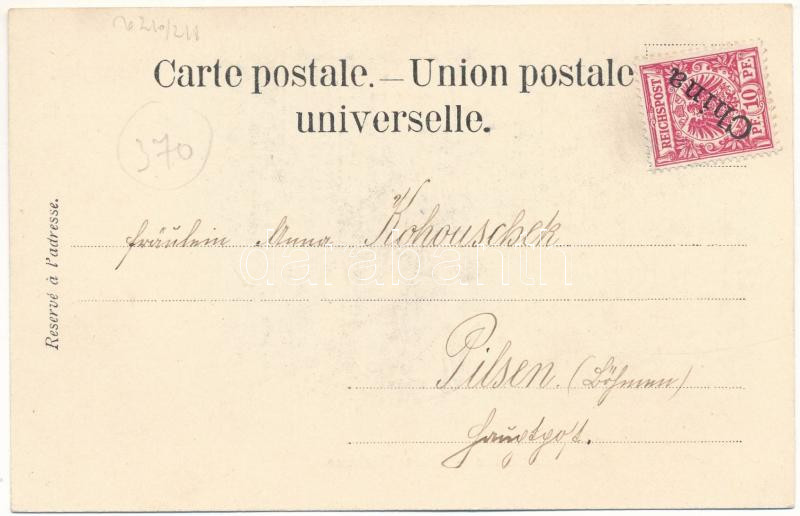 Carte postale. — Union postale
universelle.
370
China
REICHSPOST
PF. 10 PF.
Reservé à l'adresse.
Fräulein Anna Kohouschek
darabanth
Pilsen. (Böhmen)
Hauptpost.